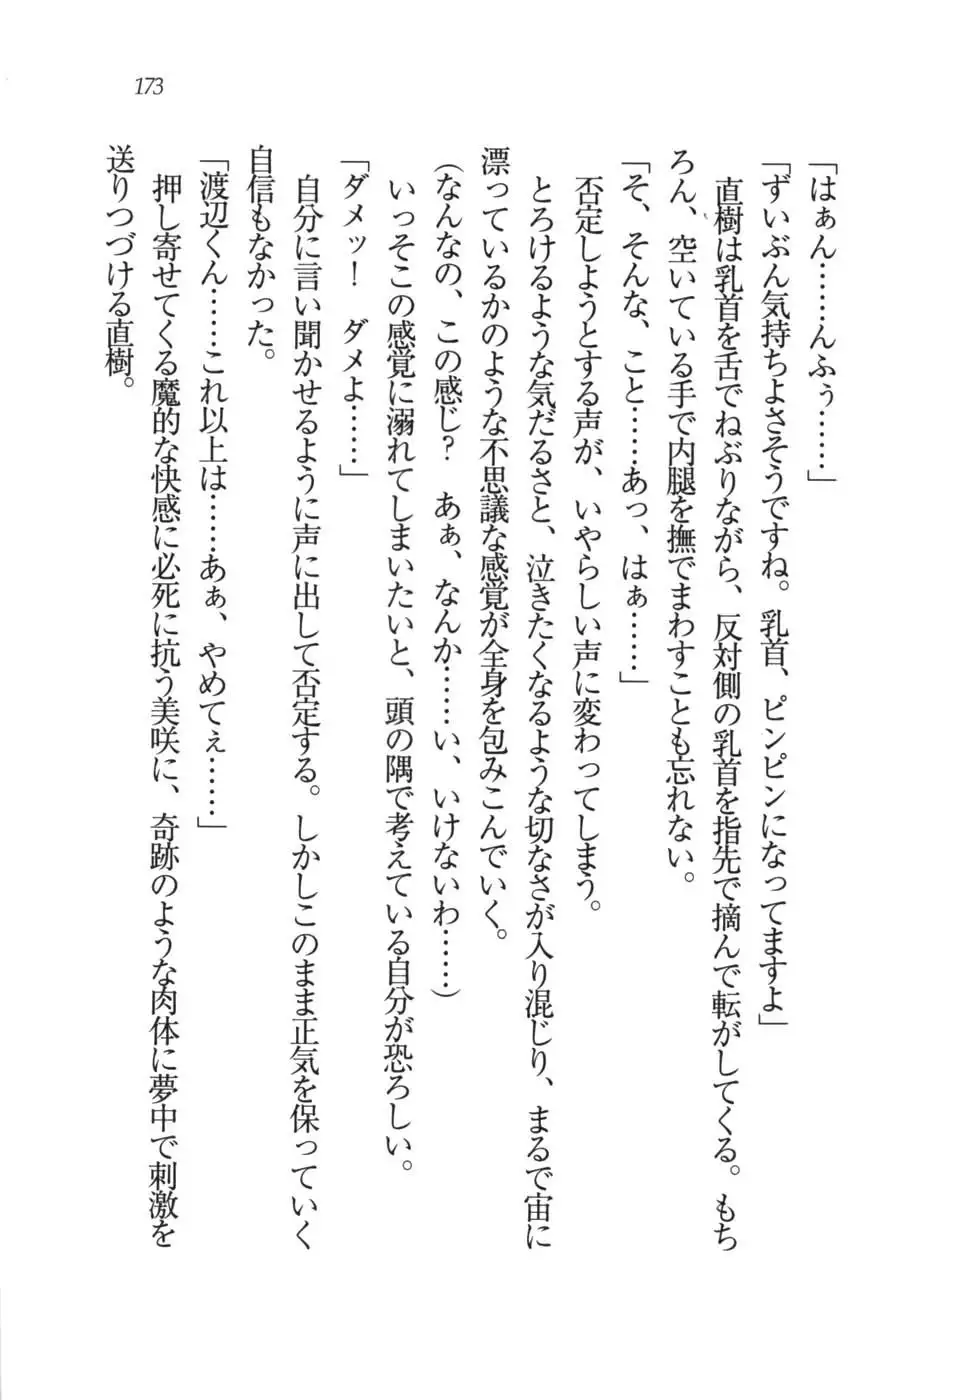 173
「はぁん………んふぅ……」
「ずいぶん気持ちよさそうですね。乳首、ピンピンになってますよ」
直樹は乳首を舌でねぶりながら、反対側の乳首を指先で摘んで転がしてくる。もち
ろん、空いている手で内腿を撫でまわすことも忘れない。
「そ、そんな、こと……あっ、はぁ……」
否定しようとする声が、いやらしい声に変わってしまう。
とろけるような気だるさと、泣きたくなるような切なさが入り混じり、まるで宙に
漂っているかのような不思議な感覚が全身を包みこんでいく。
(なんなの、この感じ? あぁ、なんか……い、いけないわ……)
いっそこの感覚に溺れてしまいたいと、頭の隅で考えている自分が恐ろしい。
「ダメッ! ダメよ……」
自分に言い聞かせるように声に出して否定する。しかしこのまま正気を保っていく
自信もなかった。
「渡辺くん……これ以上は……あぁ、やめてぇ……」
押し寄せてくる魔的な快感に必死に抗う美咲に、奇跡のような肉体に夢中で刺激を
送りつづける直樹。